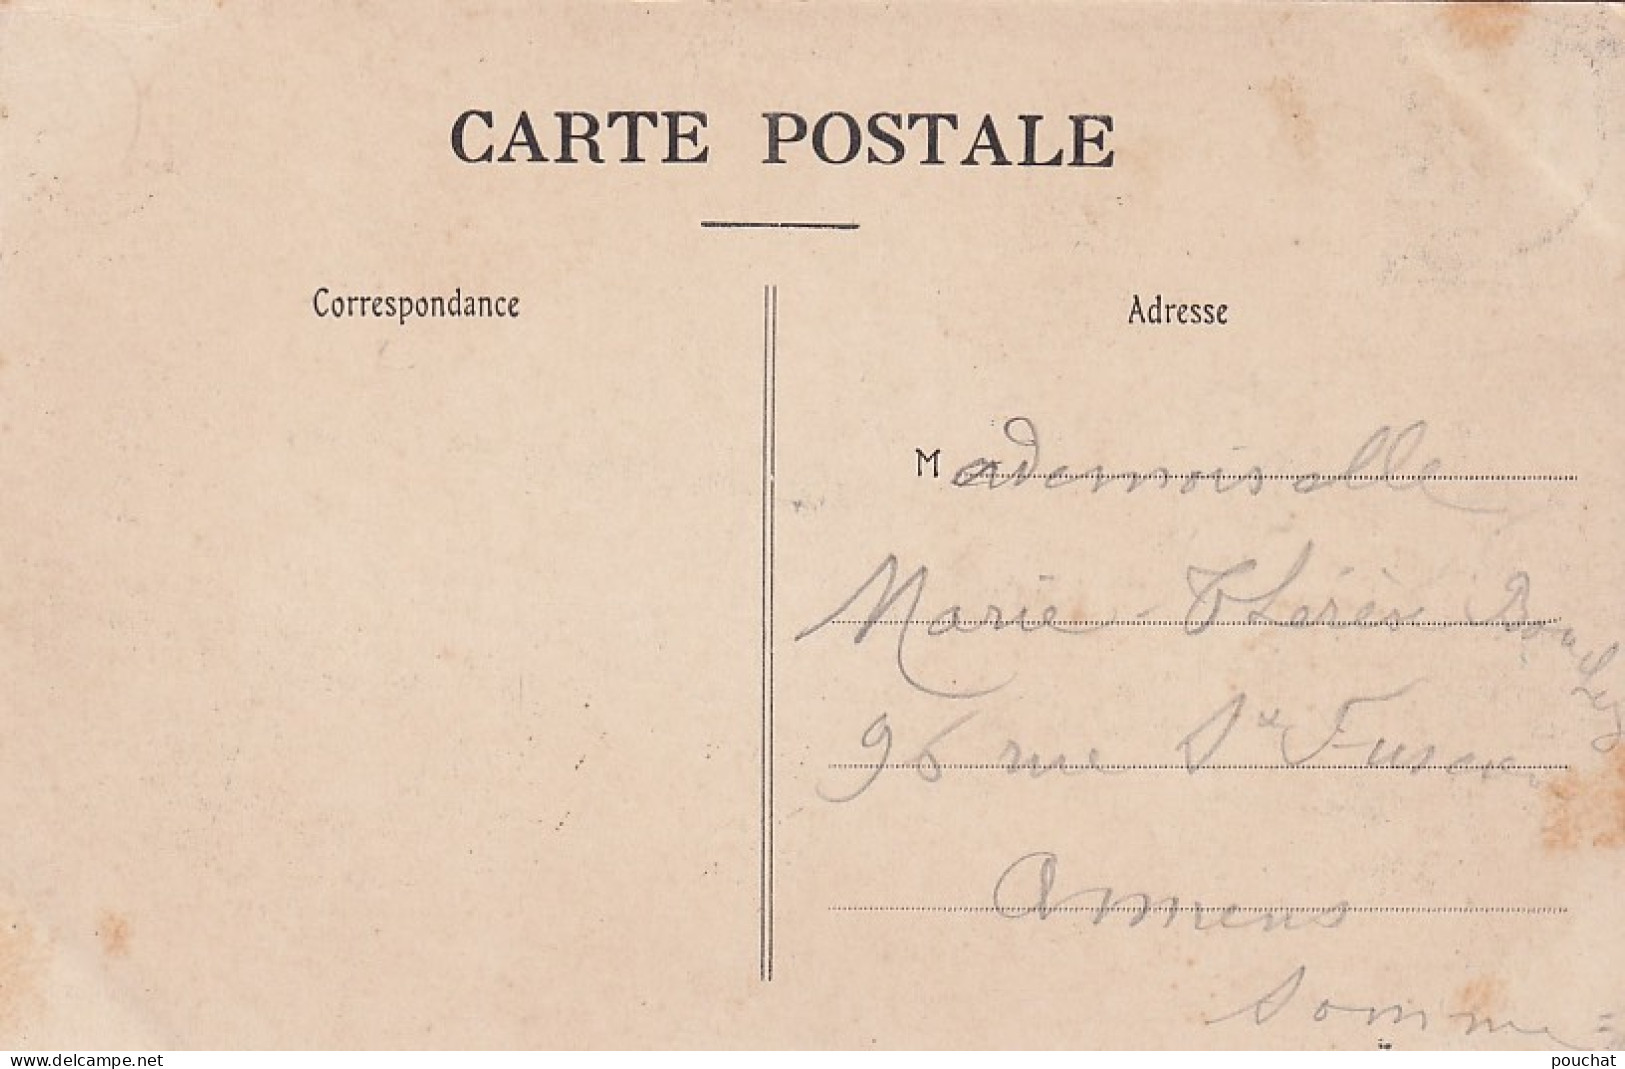 CARTE POSTALE
Correspondance
Adresse
Mademoiselle
Marie-Thérèse
96 rue St Fuscien
Amiens
Somme =
www.delcampe.net
pouchat